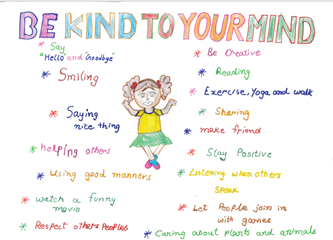 BE KIND TO YOUR MIND
* Say
"Hello" and "Goodbye"
* Smiling
* Saying
nice thing
* helping others
* Using good manners
* watch a funny
movie
* Respect others Peoples
* Be Creative
* Reading
* Exercise, Yoga and walk
* Sharing
* make friend
* Stay Positive
* Listening when others
Speak
* Let People join in
with games
* Caring about plants and animals